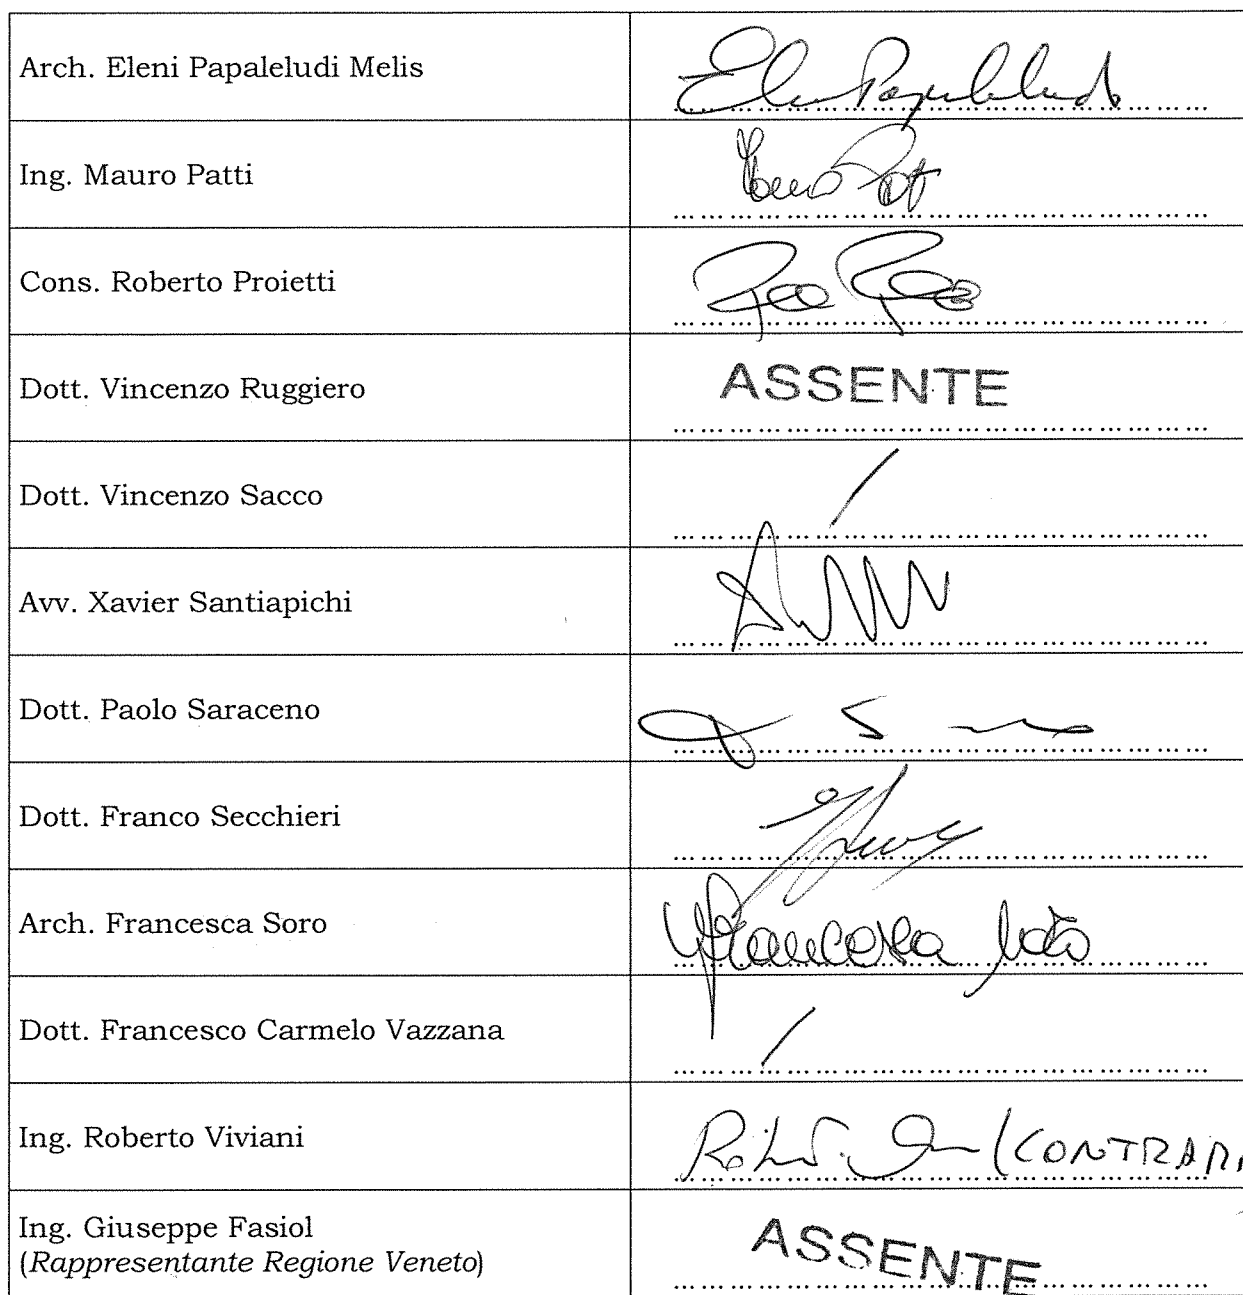 Arch. Eleni Papaleludi Melis
Ing. Mauro Patti
Cons. Roberto Proietti
Dott. Vincenzo Ruggiero ASSENTE
Dott. Vincenzo Sacco /
Avv. Xavier Santiapichi
Dott. Paolo Saraceno
Dott. Franco Secchieri
Arch. Francesca Soro Francesca Soro
Dott. Francesco Carmelo Vazzana /
Ing. Roberto Viviani (CONTRAR
Ing. Giuseppe Fasiol ASSENTE
(Rappresentante Regione Veneto)